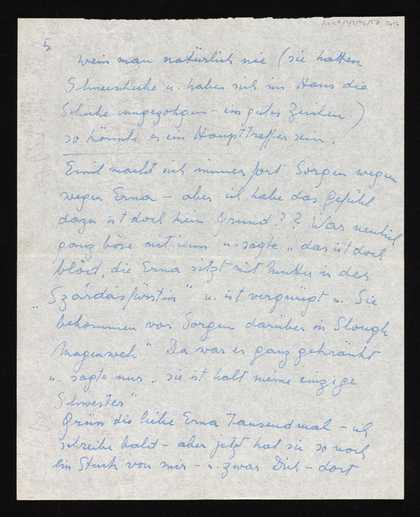 5
weiss man natürlich nie (sie hatten
Schneeschuhe u. haben sich im Haus die
Schuhe umgezogen - ein gutes Zeichen)
so könnte es ein Haupttreffer sein.
Emil macht sich immerfort Sorgen wegen
wegen Erna - aber ich habe das Gefühl
dazu ist doch kein Grund?? War neulich
ganz böse mit ihm u. sagte "das ist doch
blöd, die Erna sitzt mit Mutter in der
"Szárdásfürstin" u. ist vergnügt u. Sie
bekommen vor Sorgen darüber in Slough
Magenweh" Da war er ganz gekränkt
u. sagte nur "sie ist halt meine einzige
Schwester"
Grüss die liebe Erna Tausendmal - ich
schreibe bald - aber jetzt hat sie so noch
ein Stück von mir - u. zwar Dich - dort